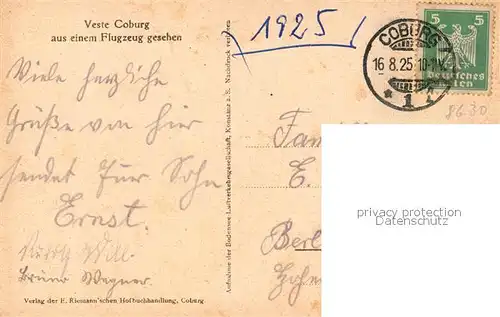 Veste Coburg
aus einem Flugzeug gesehen
1925
COBURG
16.8.25.10-11V.
* 1
5 5
Deutsches
86.30
Viele herzliche
Grüße von hier
sendet Euer Sohn
Ernst.
Bruno Wegner.
Aufnahme der Bodensee-Luftverkehrsgesellschaft, Konstanz a. S. Nachdruck verboten
Fam
E.
Berl
Hohen
privacy protection
Datenschutz
Verlag der E. Riemann'schen Hofbuchhandlung, Coburg